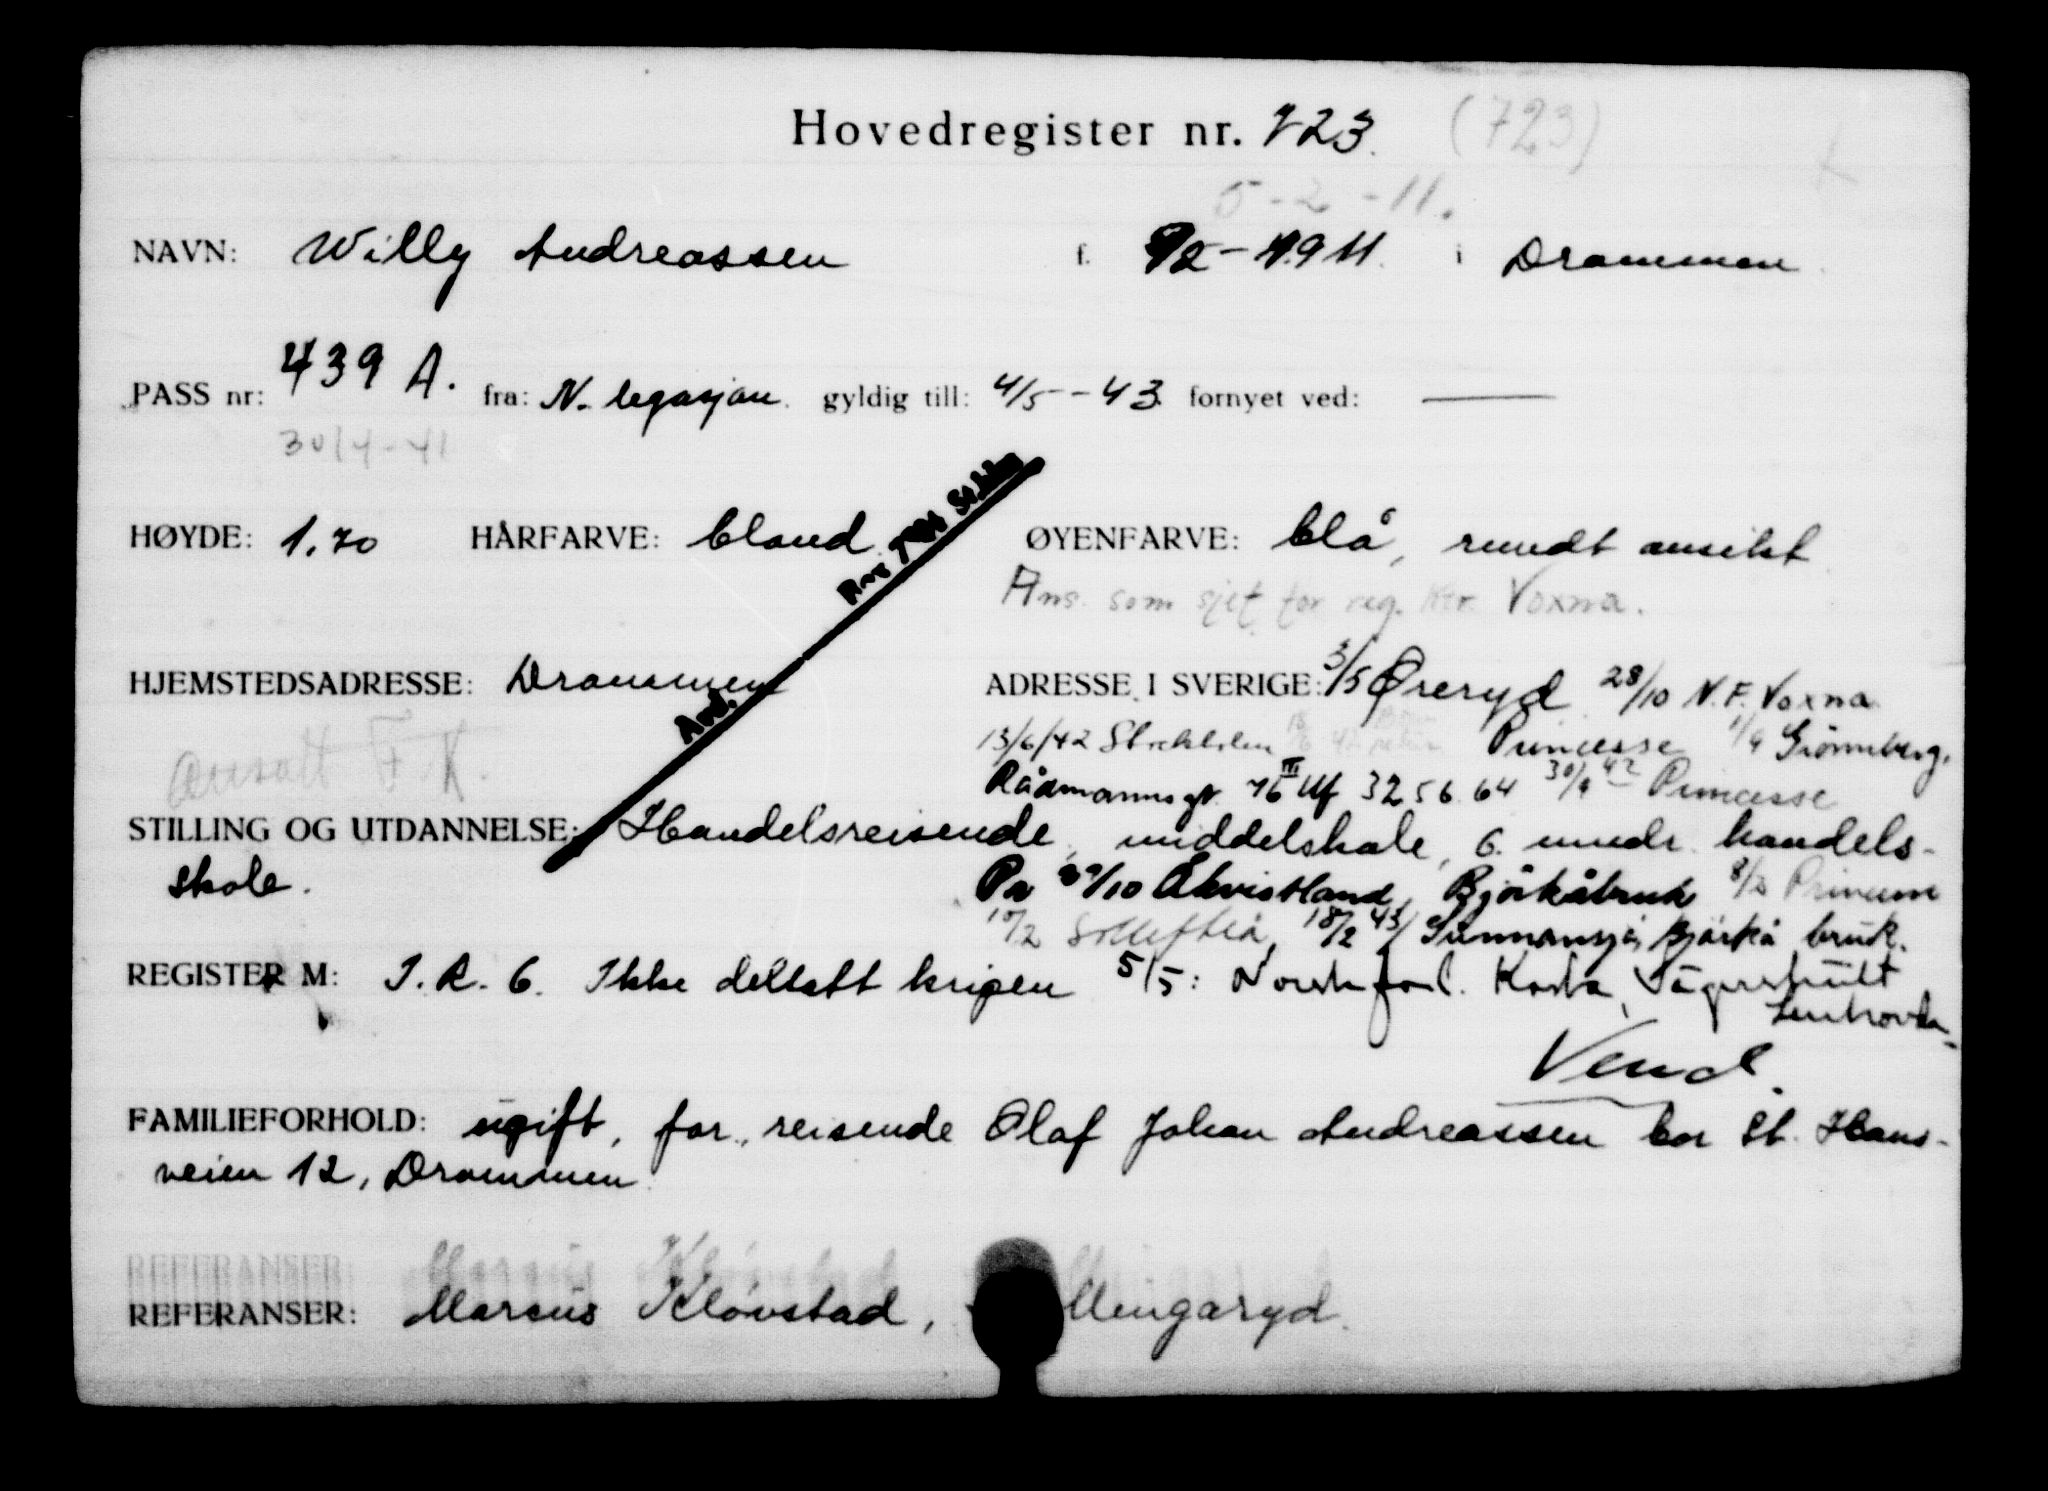 Hovedregister nr. 723. (723)
5-2-11.
NAVN: Willy Andreassen f. 5/2-1911. i Drammen.
PASS nr: 439 A. fra: N. legasjon. gyldig till: 4/5-43. fornyet ved: —
30/4-41
HØYDE: 1.70 HÅRFARVE: blond. ØYENFARVE: blå, rundt ansikt.
Ans. som sjef for reg. ktr. Voxna.
HJEMSTEDSADRESSE: Drammen ADRESSE I SVERIGE: 3/5 Øreryd 28/10 N.F. Voxna
13/6/42 Stockholm Princesse 1/9 Grönnberg.
Ansatt F.K.
Rådmannsgt. 76 III 32 56 64 30/9 42 Princesse
STILLING OG UTDANNELSE: Handelsreisende, middelskole, 6 mndr. handels-
skole.
29/10 Björkåbruk 8/2
10/2 Sollefteå, 18/2 43 Sunnansjö, Björkå bruk.
REGISTER M: I.R. 6. Ikke deltatt krigen 5/5: Norsk forl. Kosta, Vägershult
Lenhovda
Vend.
FAMILIEFORHOLD: ugift, far, reisende Olaf Johan Andreassen bor St. Hans-
veien 12, Drammen.
REFERANSER: Marcus Kløvstad,